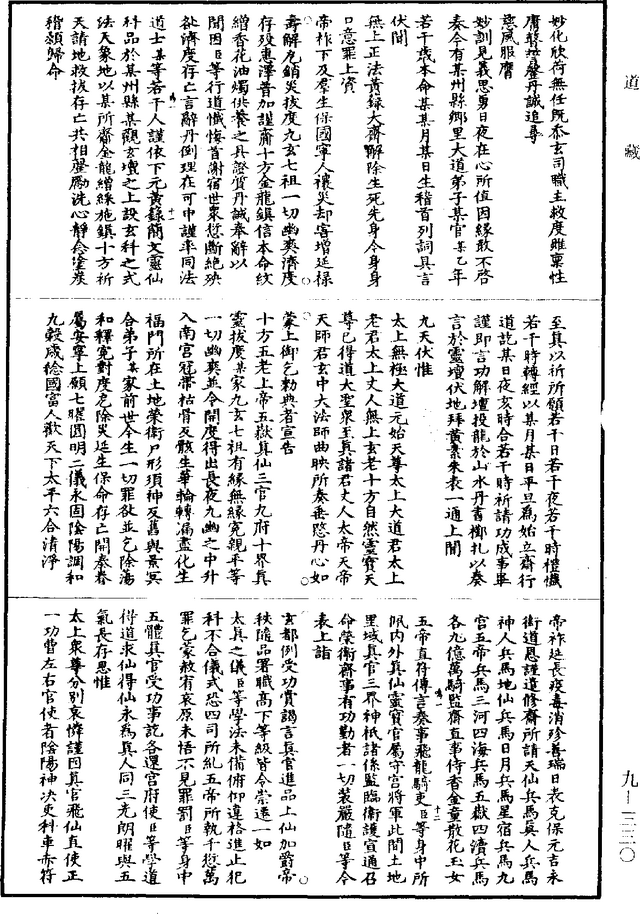 道藏
妙化欣荷無任既忝玄司職主救度雖稟性
膚愨𠫵丹誠追尋
慈風服膺
妙訓見義思勇日夜在心所值因緣敢不啓
奏今有某州縣鄉里大道弟子某官某乙年
若干歲本命某某月某日生稽首列詞具言
伏聞
無上正法黃籙大齋解除生死先身今身身
口意罪上資
帝祚下及羣生保國寧人禳災却害增延祿
壽解厄銷災拔度九玄七祖一切幽爽濟度
存歿惠澤普加謹齋十方金龍鎮信本命紋
繒香花油燭供養之具證質丹誠奉辭以
聞因臣等行道懺悔首謝宿世衆愆斷絕殃
欲濟度存亡言辭丹倒理在可申謹率同法
道士某等若干人謹依下元黃籙簡文靈仙
科品於某州縣某觀玄壇之上設玄科之式
法天象地以某所齋金龍繒綵施鎮十方祈
天請地救拔存亡共相勸勵洗心靜念塗炭
稽顙歸命
至真以祈所願若干日若干夜若干時禮懺
若干時轉經以某月某日平旦爲始立齋行
道訖某日夜亥時合若干時祈請功成事畢
謹即言功解壇投龍於山水丹書擲札以奏
言於靈壇伏地拜黃素朱表一通上聞
九天伏惟
太上無極大道元始天尊太上大道君太上
老君太上丈人無上玄老十方自然靈寶天
尊已得道大聖衆至真諸君丈人太帝天帝
天師君玄中大法師曲映所奏垂愍丹心如
蒙上御乞勑典者宣告
十方五老上帝五嶽真仙三官九府十界真
靈拔度某家九玄七祖有緣無緣冤親平等
一切幽爽並令開度得出長夜九幽之中升
入南宮冠帶枯骨反骸生華輪轉漏盡化生
福門所在土地榮衛戶形須神反舊與景冥
合弟子某家前世今生一切罪欲並乞除蕩
和釋冤對度危除災延生保命存亡開泰眷
屬安寧上願七曜圓明二儀永固陰陽調和
九穀咸稔國富人歡天下太平六合清淨
帝祚延長疫毒消殄善瑞日表克保元吉永
銜道恩謹道修齋所請天仙兵馬真人兵馬
神人兵馬地仙兵馬日月兵馬星宿兵馬九
宮五帝兵馬三河四海兵馬五嶽四瀆兵馬
各九億萬騎監齋直事侍香金童散花玉女
五帝直符傳言奏事飛龍騎吏臣等身中所
佩內外真仙靈寶官屬守宮將軍此間土地
里域真官三界神祇諸係監臨衛護宣通召
命榮衛齋事有功勤者一切裝嚴隨臣等今
表上詣
玄都例受功賞謁言真官進品上仙加爵帝
秩隨品署職高下等級皆令崇遷一如
太真之儀臣等學法未備俯仰違格進止犯
科不合儀式恐四司所糺五帝所執千愆萬
罪乞蒙赦宥哀原未悟不見罪罰臣等身中
五體真官受功事訖各還宮府使臣等學道
得道求仙得仙永爲真人同三光朗曜與五
氣長存思惟
太上衆尊分別哀憐謹因真官飛仙直使正
一功曹左右官使者陰陽神決吏科車赤符
九-三三〇